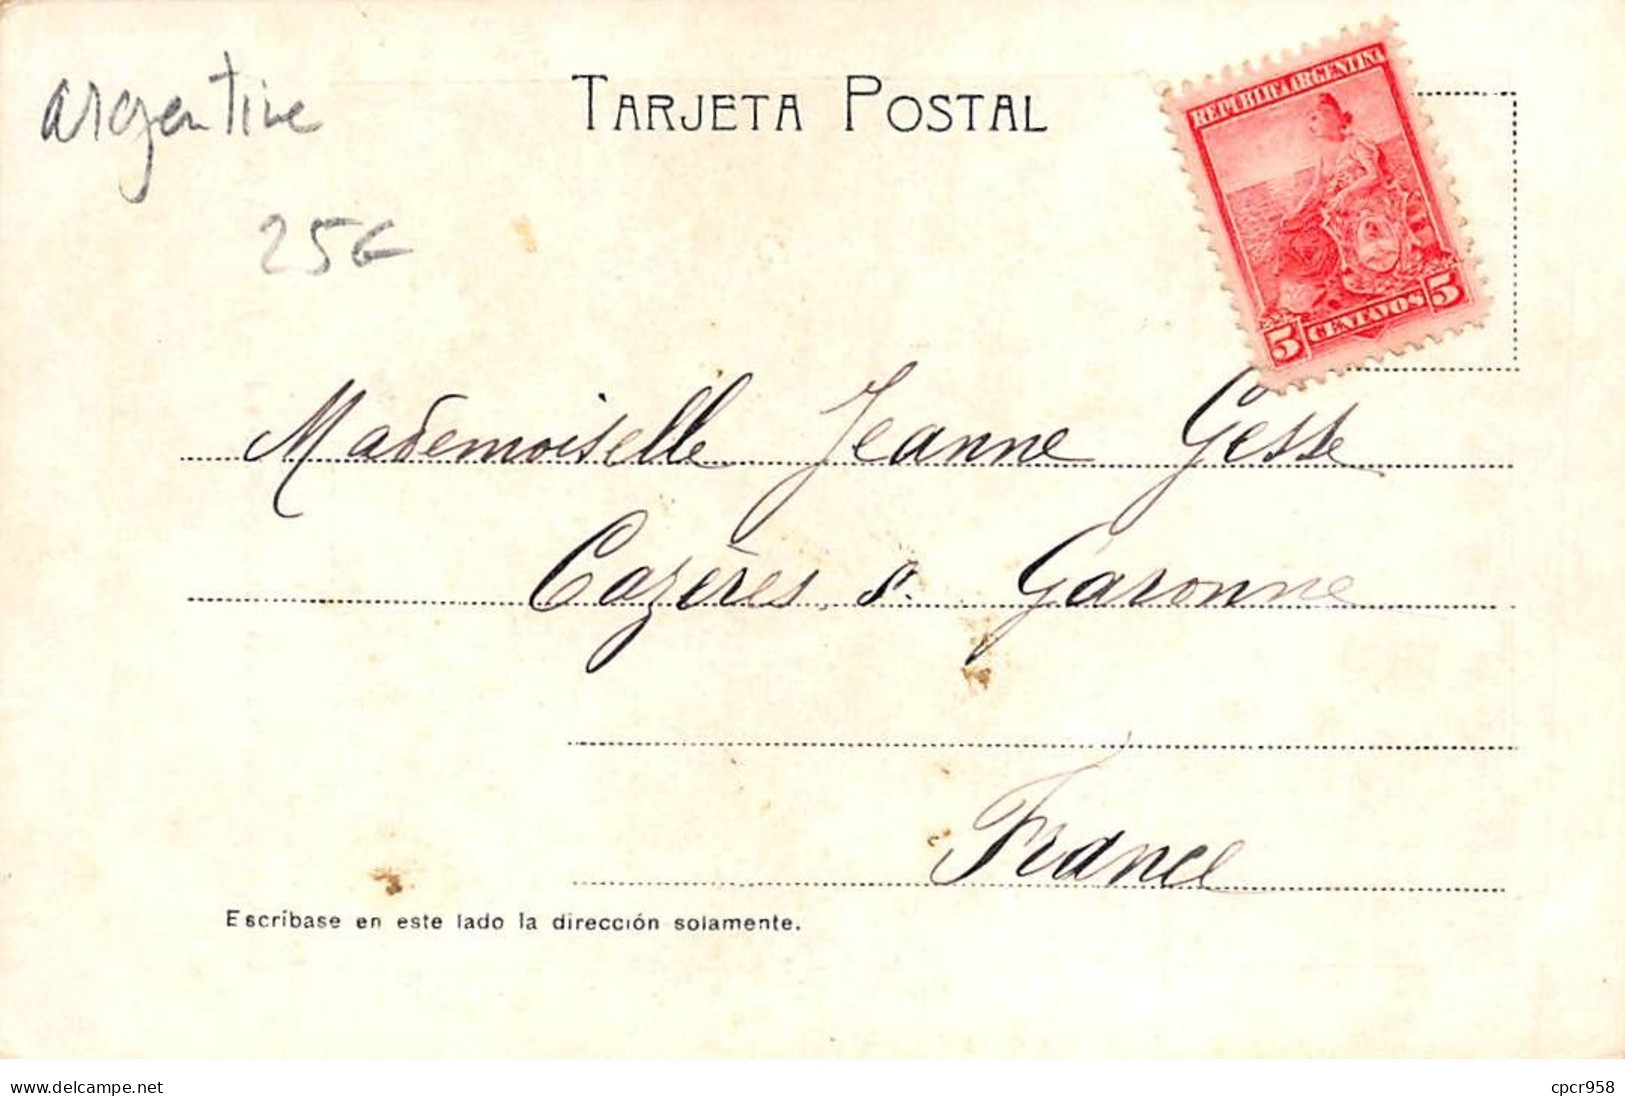 argentine
TARJETA POSTAL
25€
REPUBLICA ARGENTINA
5 CENTAVOS 5
Mademoiselle Jeanne Gesse
Cazères s. Garonne
France
Escríbase en este lado la dirección solamente.
www.delcampe.net
cpcr958